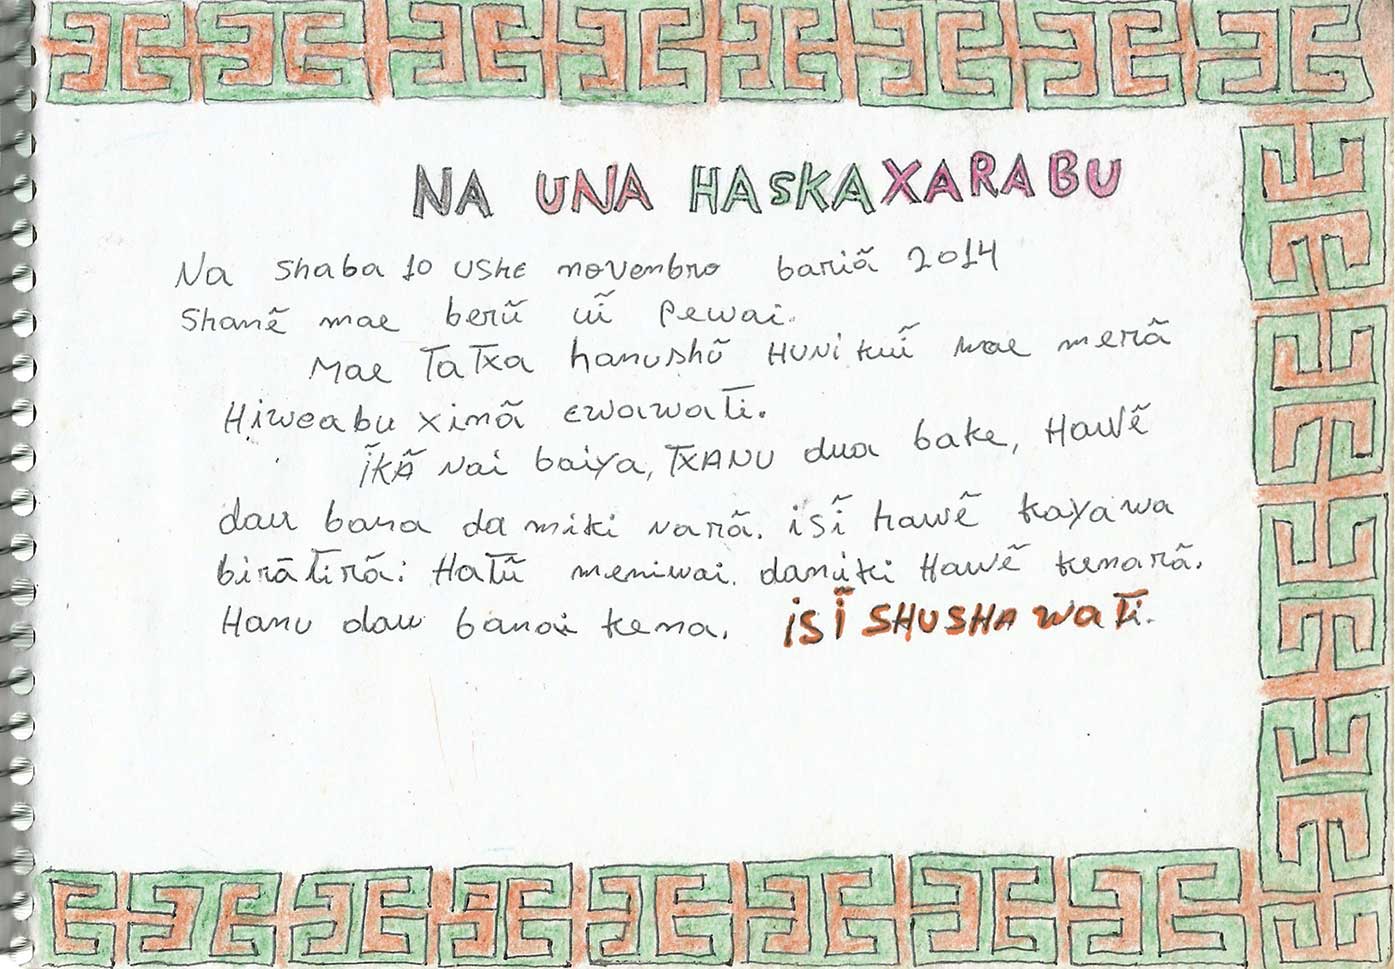 NA UNA HASKAXARABU
Na shaba 10 USHE novembro bariã 2014
Shanẽ mae berũ uĩ pewai.
Mae TaTxa hanushũ HUNi kuĩ mae merã
Hiweabu ximã ewawati.
ĨKÃ Nai baiya, TXANU dua bake, HAWẼ
dau bana da miki narã. isĩ hawẽ kayawa
birãtirã: Hatũ meniwai. damiki Hawẽ kenarã.
Hanu dau banai kena. iSĨ SHUSHAWATi.